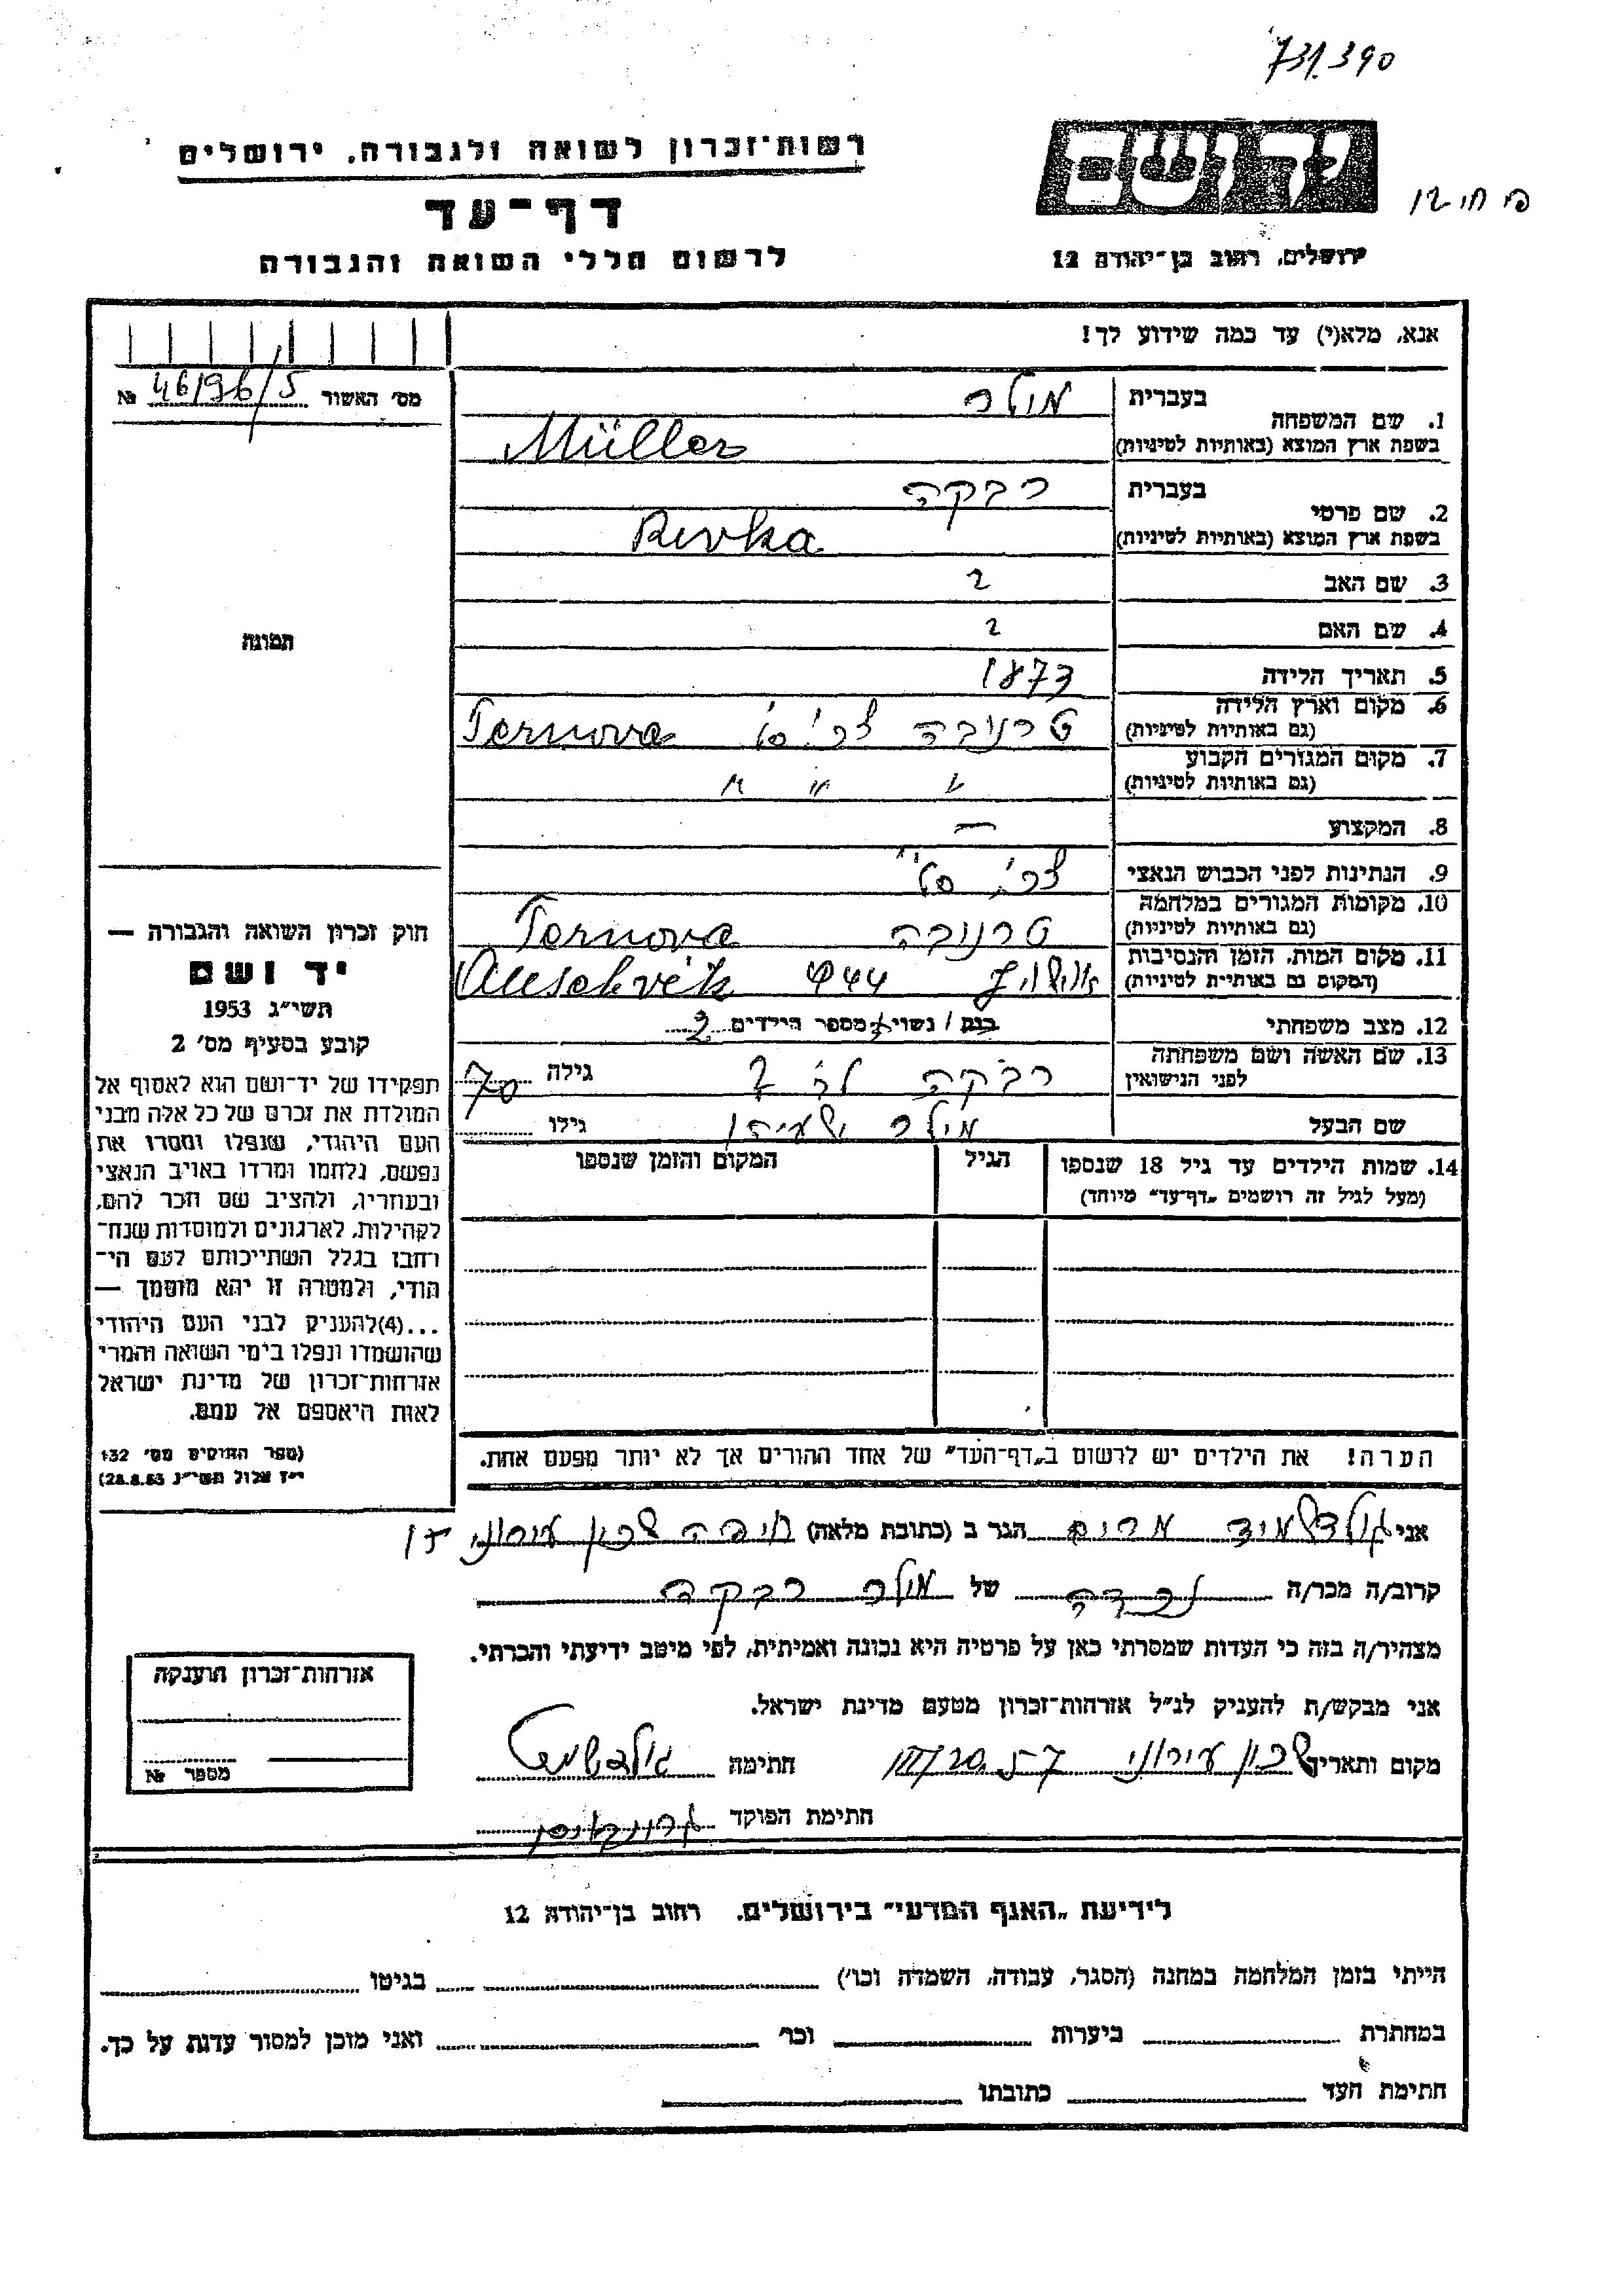 731390
רשות־זכרון לשואה ולגבורה, ירושלים
יד ושם
דף־עד
לרשום חללי השואה והגבורה
ירושלים, רחוב בן־יהודה 12
אנא, מלא(י) עד כמה שידוע לך!
מס' האשור № 46/96/5
1. שם המשפחה
בעברית מולר
בשפת ארץ המוצא (באותיות לטיניות) Müller
2. שם פרטי
בעברית רבקה
בשפת ארץ המוצא (באותיות לטיניות) Rivka
3. שם האב ?
4. שם האם ?
5. תאריך הלידה 1873
6. מקום וארץ הלידה
(גם באותיות לטיניות) טרנובה צ'כ'סל' Ternova
7. מקום המגורים הקבוע
(גם באותיות לטיניות) " " "
8. המקצוע —
9. הנתינות לפני הכבוש הנאצי
10. מקומות המגורים במלחמה
(גם באותיות לטיניות) טרנובה Ternova
11. מקום המות, הזמן והנסיבות
(המקום גם באותיות לטיניות) אושוויץ 944
12. מצב משפחתי רווק / נשוי מספר הילדים 2
13. שם האשה ושם משפחתה
לפני הנישואין רבקה ? גילה 70
שם הבעל מולר גילו
14. שמות הילדים עד גיל 18 שנספו
(מעל לגיל זה רושמים „דף־עד" מיוחד)
הגיל
המקום והזמן שנספו
הערה! את הילדים יש לרשום ב„דף־העד" של אחד ההורים אך לא יותר מפעם אחת.
תמונה
חוק זכרון השואה והגבורה —
יד ושם
תשי"ג 1953
קובע בסעיף מס' 2
תפקידו של יד־ושם הוא לאסוף אל
המולדת את זכרם של כל אלה מבני
העם היהודי, שנפלו ומסרו את
נפשם, נלחמו ומרדו באויב הנאצי
ובעוזריו, ולהציב שם וזכר להם,
לקהילות, לארגונים ולמוסדות שנח־
רחבו בגלל השתייכותם לעם הי־
הודי, ולמטרה זו יהא מוסמך —
...(4)להעניק לבני העם היהודי
שהושמדו ונפלו בימי השואה והמרי
אזרחות־זכרון של מדינת ישראל
לאות היאספם אל עמם.
(ספר החוקים מס' 132
י"ז אלול תשי"ג 28.8.53)
אני גולדשמיד מרים הגר ב (כתובת מלאה) חיפה שכון עירוני
קרוב/ה מכר/ה נכדה של מולר רבקה
מצהיר/ה בזה כי העדות שמסרתי כאן על פרטיה היא נכונה ואמיתית, לפי מיטב ידיעתי והכרתי.
אני מבקש/ת להעניק לנ"ל אזרחות־זכרון מטעם מדינת ישראל.
מקום ותאריך שכון עירוני 20/III 57 חתימה גולדשמיט
חתימת הפוקד
אזרחות־זכרון הוענקה
מספר №
לידיעת „האגף המדעי" בירושלים, רחוב בן־יהודה 12
הייתי בזמן המלחמה במחנה (הסגר, עבודה, השמדה וכו') בגיטו
במחתרת ביערות וכו' ואני מוכן למסור עדות על כך.
חתימת העד כתובתו